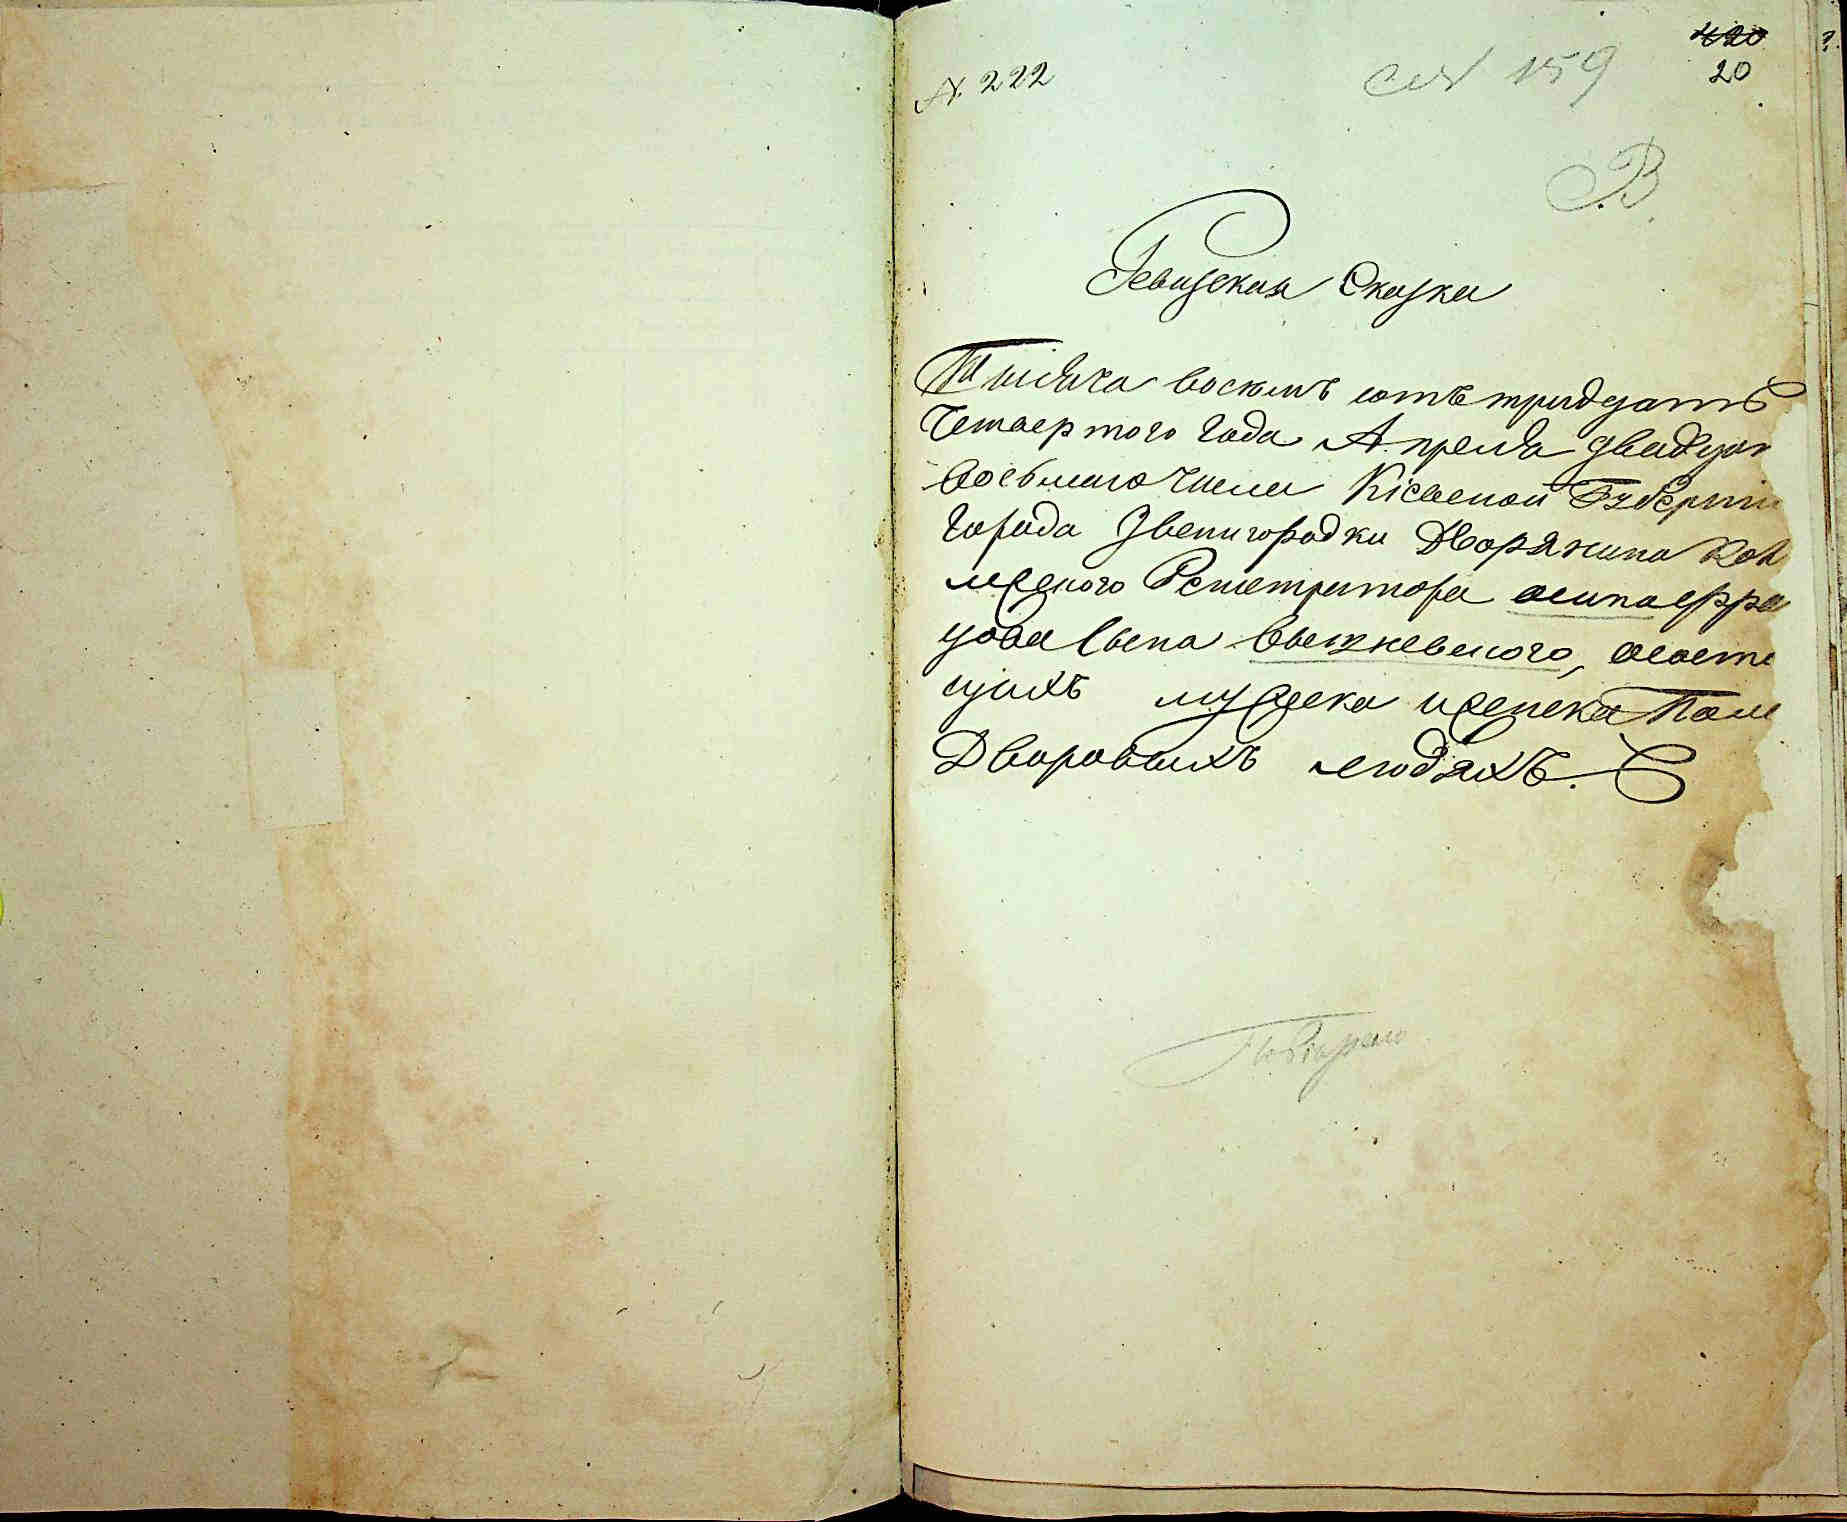 420
20
N. 222
159
В.
Ревизская Сказка
Тысяча восемъ сотъ тридцать
Четвертого года Апреля двадцат
восьмаго числа Кіевской Губерніи
города Звенигородки Дворянина Кол
лежского Регистратора осипа фра
цова Сына Вышневского, о состо
щихъ мужеска и женска Пола
Дворовыхъ людяхъ.